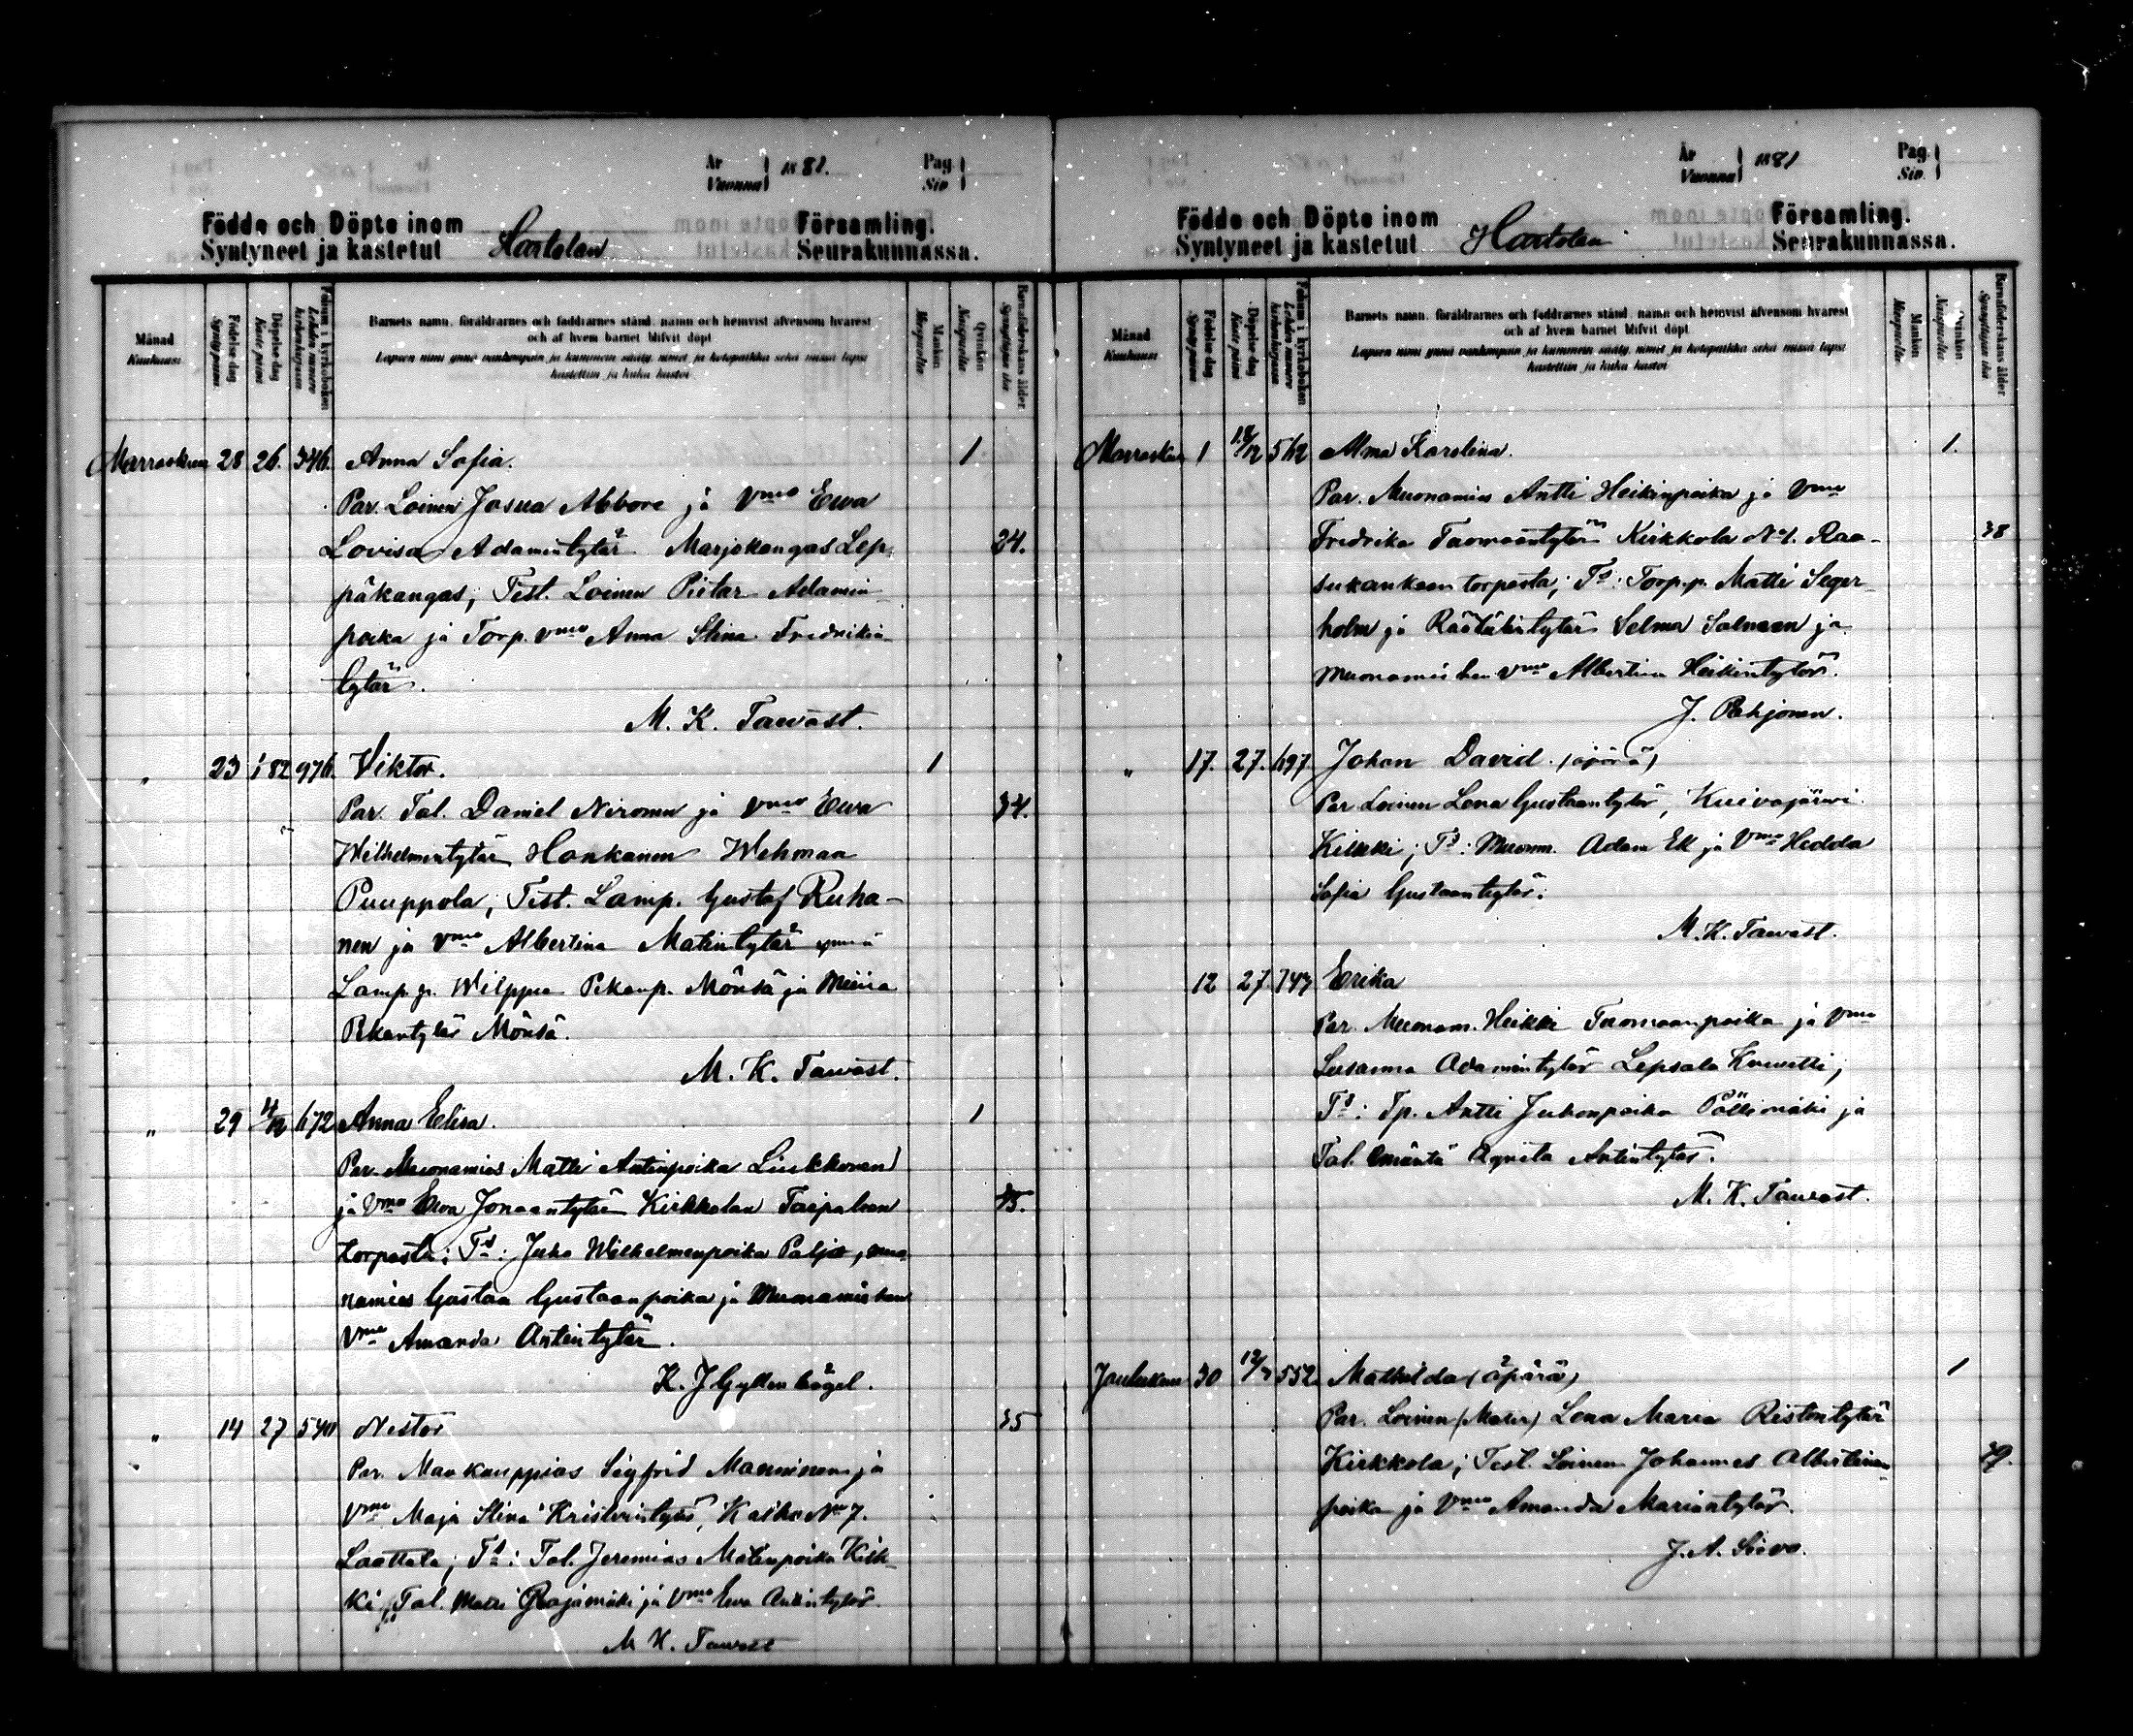 År
Vuonna 1881.
Pag.
Siv.
Födde och Döpte inom
Syntyneet ja kastetut
Hartolan
Församling.
Seurakunnassa.
Månad
Kuukausi
Födelse dag
Syntymä päivä
Döpelse dag
Kaste päivä
Folium i kyrkoboken
Lehden numero kirkonkirjassa
Barnets namn, föräldrarnes och faddrarnes stånd, namn och hemvist äfvensom hvarest
och af hvem barnet blifvit döpt
Lapsen nimi ynnä vanhempain ja kummein sääty, nimet ja kotopaikka sekä missä lapsi
kastettiin ja kuka kastoi
Mankön
Miespuolta
Qvinkön
Naispuolta
Barnaföderskans ålder
Synnyttäjän ikä
Marraskuu 28 26. 346. Anna Sofia. 1
Par. Loinen Josua Abbore ja Vmo Ewa
Lovisa Adamintytär Marjokangas Lep
päkangas; Test. Loinen Pietar Adamin
poika ja Torp. vmo Anna Stina Fredrikin
tytär.
24.
M. K. Tawast.
" 23 1/82 976. Viktor. 1
Par. Tal. Daniel Nironen ja vmo Ewa
Wilhelmintytär Honkanen Wehmaa
Puuppola; Test. Lamp. Gustaf Ruha-
nen ja vmo Albertina Matintytär ynnä
Lamp. p. Wilppu Pekanp. Mönsä ja Miina
Pekantytär Mönsä.
34.
M. K. Tawast.
" 29 4/12 672 Anna Elisa. 1
Par. Muonamies Matti Antinpoika Liukkonen
ja Vmo Ewa Jonaantytär Kirkkolan Taipaleen
torpasta; Td: Juho Wilhelminpoika Paljo, muo
namies Gustaa Gustaanpoika ja Muonamiehen
Vmo Amanda Antintytär.
35.
K. J Gyllenbögel.
" 14 27 540 Nestor 35
Par. Maakauppias Sigfrid Manninen ja
Vmo Maja Stina Kristerintytär, Kaiho No 7.
Laattala; Td: Tal. Jeremias Matinpoika Kirk
ki, Tal. Matti Rajamäki ja Vmo Ewa Antintytär.
M K. Tawast
År
Vuonna 1881
Pag.
Siv.
Födde och Döpte inom
Syntyneet ja kastetut
Hartolan
Församling.
Seurakunnassa.
Månad
Kuukausi
Födelse dag
Syntymä päivä
Döpelse dag
Kaste päivä
Folium i kyrkoboken
Lehden numero kirkonkirjassa
Barnets namn, föräldrarnes och faddrarnes stånd, namn och hemvist äfvensom hvarest
och af hvem barnet blifvit döpt
Lapsen nimi ynnä vanhempain ja kummein sääty, nimet ja kotopaikka sekä missä lapsi
kastettiin ja kuka kastoi
Mankön
Miespuolta
Qvinkön
Naispuolta
Barnaföderskans ålder
Synnyttäjän ikä
Marraskuu 1 18/12 512 Alma Karolina. 1.
Par. Muonamies Antti Heikinpoika ja Vmo
Fredrika Tuomaantytär Kirkkola No 1. Raa-
sukankaan torpasta; Td: Torp.p. Matti Seger
holm ja Räätälintytär Selma Salmeen ja
Muonamiehen vmo Albertina Heikintytär.
38
J. Pohjonen.
" 17. 27. 697 Johan David. (äpärä)
Par. Loinen Lena Gustaantytär, Kuivajärwi
Kirkki; Td: Muonm. Adam Ek ja Vmo Hedda
Sofia Gustaantytär.
M. K. Tawast.
12 27. 747 Erika
Par. Muonam. Heikki Tuomaanpoika ja Vmo
Susanna Adamintytär Lepsala
Td: Tp. Antti Juhonpoika Pöllömäki ja
Tal. emäntä Agneta Antintytär.
M. K. Tawast.
Joulukuu 30 552 Mathilda (äpärä) 1
Par. Loinen (Mater) Lena Maria Ristontytär
Kirkkola; Test. Loinen Johannes Albertinin
poika ja Vmo Amanda Mariantytär.
J. A. Siivo.